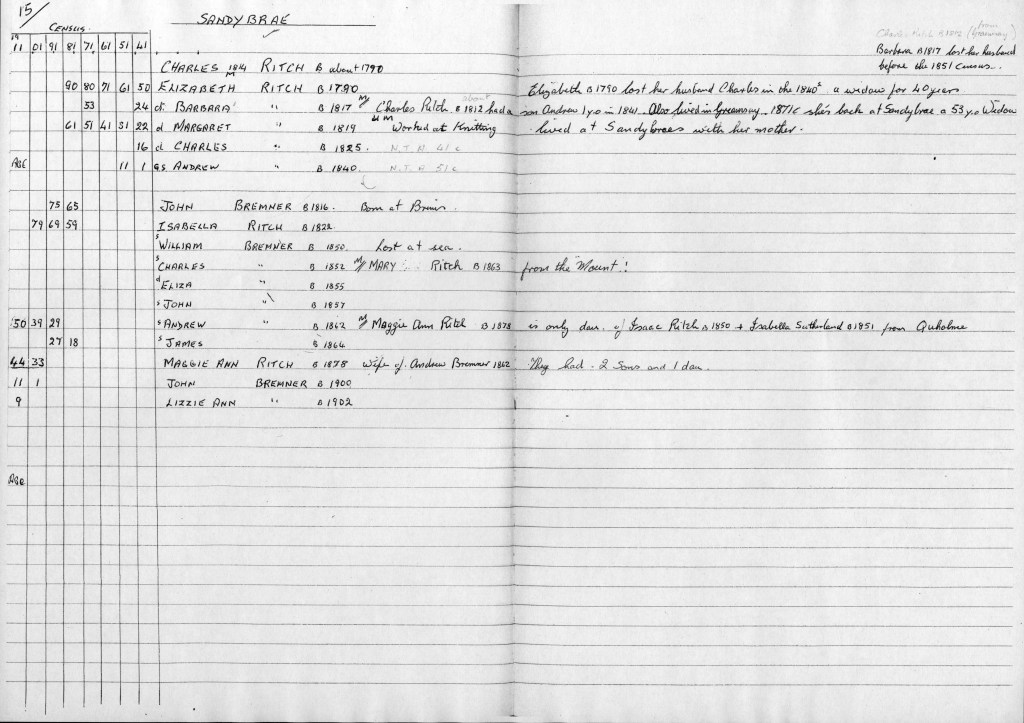 15/
SANDYBRAE
CENSUS
from
Charles Ritch B 1812 (Graemsay)
19
11 01 91 81 71 61 51 41
Barbara B 1817 lost her husband
before the 1851 census.
CHARLES M 1814 RITCH B about 1790
90 80 71 61 50 ELIZABETH RITCH B 1790 Elizabeth B 1790 lost her husband Charles in the 1840s a widow for 40 years
53 24 d. BARBARA " B 1817 M Charles Ritch B about 1812 had a son Andrew 1 yo in 1841. Also lived in Graemsay. 1871c she's back at Sandybrae a 53 yo Widow
61 51 41 31 22 d MARGARET " B 1819 UM Worked at Knitting lived at Sandybraes with her mother.
16 d CHARLES " B 1825. N.T.N. 41 c
AGE 11 1 GS ANDREW " B 1840. N.T.A 51 c
75 65 JOHN BREMNER B 1816. Born at Breius.
79 69 59 ISABELLA RITCH B 1822
s WILLIAM BREMNER B 1850. Lost at sea.
s CHARLES " B 1852 M MARY Ritch B 1863 from the "Mount"!
d ELIZA " B 1855
s JOHN " B 1857
50 39 29 s ANDREW " B 1862 M Maggie Ann Ritch B 1878 is only daur. of Isaac Ritch B 1850 + Isabella Sutherland B 1851 from Quholme
27 18 s JAMES B 1864
44 33 MAGGIE ANN RITCH B 1878 wife of. Andrew Bremner 1862 They had. 2 Sons and 1 dau.
11 1 JOHN BREMNER B 1900
9 LIZZIE ANN " B 1902
AGE